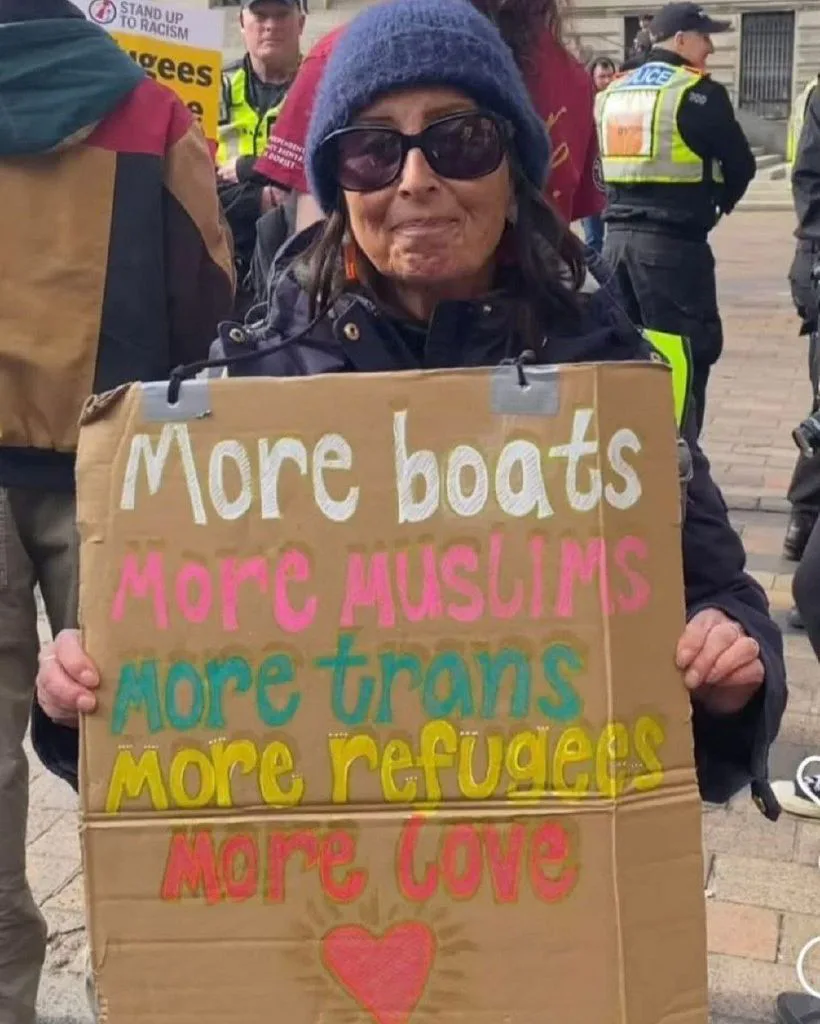 STAND UP
TO RACISM
gees
POLICE
More boats
More Muslims
More trans
More refugees
More love